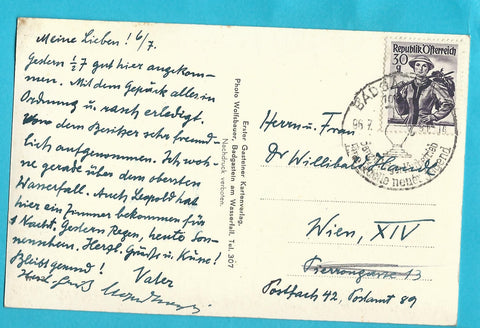 Meine Lieben! 6/7.
Gestern ½ 7 gut hier angekom-
men. Mit dem Gepäck alles in
Ordnung u. rasch erledigt.
Von dem Besitzer sehr freund-
lich aufgenommen. Ich woh-
ne gerade über dem obersten
Wasserfall. Auch Leopold hat
hier ein Zimmer bekommen für
1 Nacht. Gestern Regen, heute Son-
nenschein. Herzl. Grüße u. Küsse!
Bleibt gesund! Vater
Erster Gasteiner Kartenverlag.
Photo Wolfsbauer, Badgastein am Wasserfall. Tel. 307
Nachdruck verboten.
Republik Österreich
30 g
BADGA
Herrn u. Frau
Dr Willibald
Wien, XIV
13
Postfach 42, Postamt 89